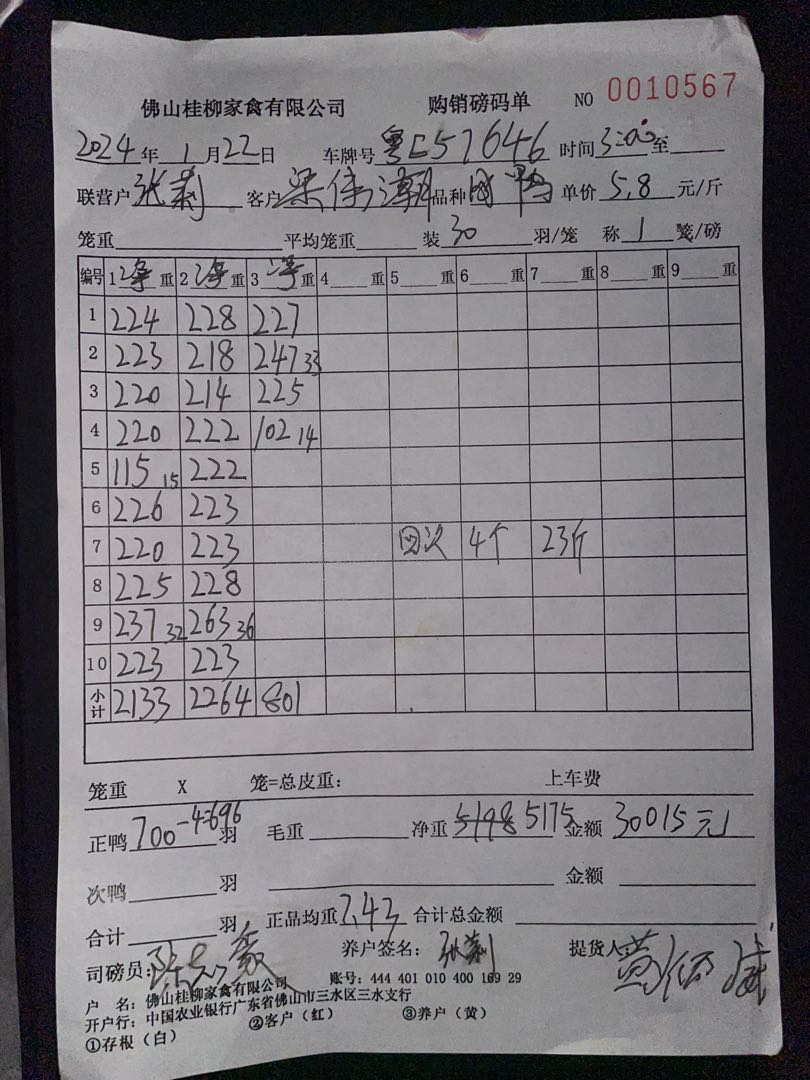 佛山桂柳家禽有限公司 购销磅码单 NO 0010567
2024年1月22日 车牌号 粤E57646 时间 3:00 至
联营户 张莉 客户 梁伟潮 品种 鸭 单价 5.8 元/斤
笼重 平均笼重 装 30 羽/笼 称 1 笼/磅
编号 1 净 重 2 净 重 3 净 重 4 重 5 重 6 重 7 重 8 重 9 重
1 224 228 227
2 223 218 247 33
3 220 214 225
4 220 222 102 14
5 115 15 222
6 226 223
7 220 223 回次 4个 23斤
8 225 228
9 237 32 263 36
10 223 223
小计 2133 2264 801
笼重 X 笼=总皮重: 上车费
正鸭 700-4=696 羽 毛重 净重 5198 5175 金额 30015元
次鸭 羽 金额
合计 羽 正品均重 7.43 合计总金额
司磅员: 陈 养户签名: 张莉 提货人 黄
户 名: 佛山桂柳家禽有限公司 账号: 444 401 010 400 169 29
开户行: 中国农业银行广东省佛山市三水区三水支行
①存根(白) ②客户(红) ③养户(黄)